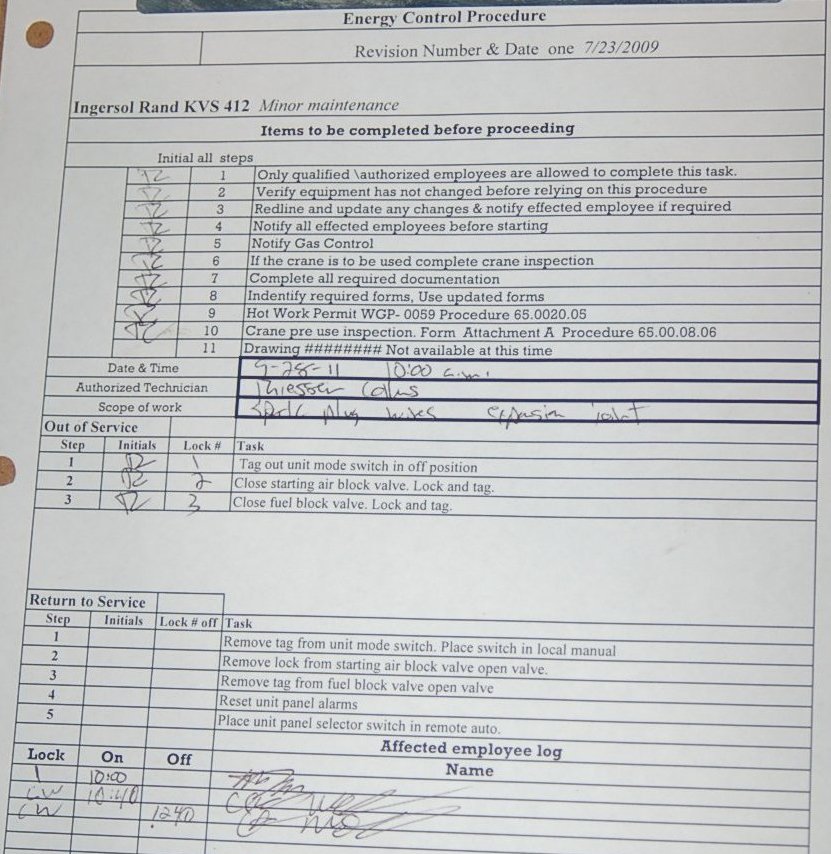 Energy Control Procedure
Revision Number & Date one 7/23/2009
Ingersol Rand KVS 412 Minor maintenance
Items to be completed before proceeding
Initial all steps
1 Only qualified \authorized employees are allowed to complete this task.
2 Verify equipment has not changed before relying on this procedure
3 Redline and update any changes & notify effected employee if required
4 Notify all effected employees before starting
5 Notify Gas Control
6 If the crane is to be used complete crane inspection
7 Complete all required documentation
8 Indentify required forms, Use updated forms
9 Hot Work Permit WGP- 0059 Procedure 65.0020.05
10 Crane pre use inspection. Form Attachment A Procedure 65.00.08.06
11 Drawing ######## Not available at this time
Date & Time 9-28-11 10:00 a.m.
Authorized Technician
Scope of work Spark plug wires expansion joint
Out of Service
Step Initials Lock # Task
1 1 Tag out unit mode switch in off position
2 2 Close starting air block valve. Lock and tag.
3 3 Close fuel block valve. Lock and tag.
Return to Service
Step Initials Lock # off Task
1 Remove tag from unit mode switch. Place switch in local manual
2 Remove lock from starting air block valve open valve.
3 Remove tag from fuel block valve open valve
4 Reset unit panel alarms
5 Place unit panel selector switch in remote auto.
Affected employee log
Lock On Off Name
1 10:00
CW 10:40
CW 1240